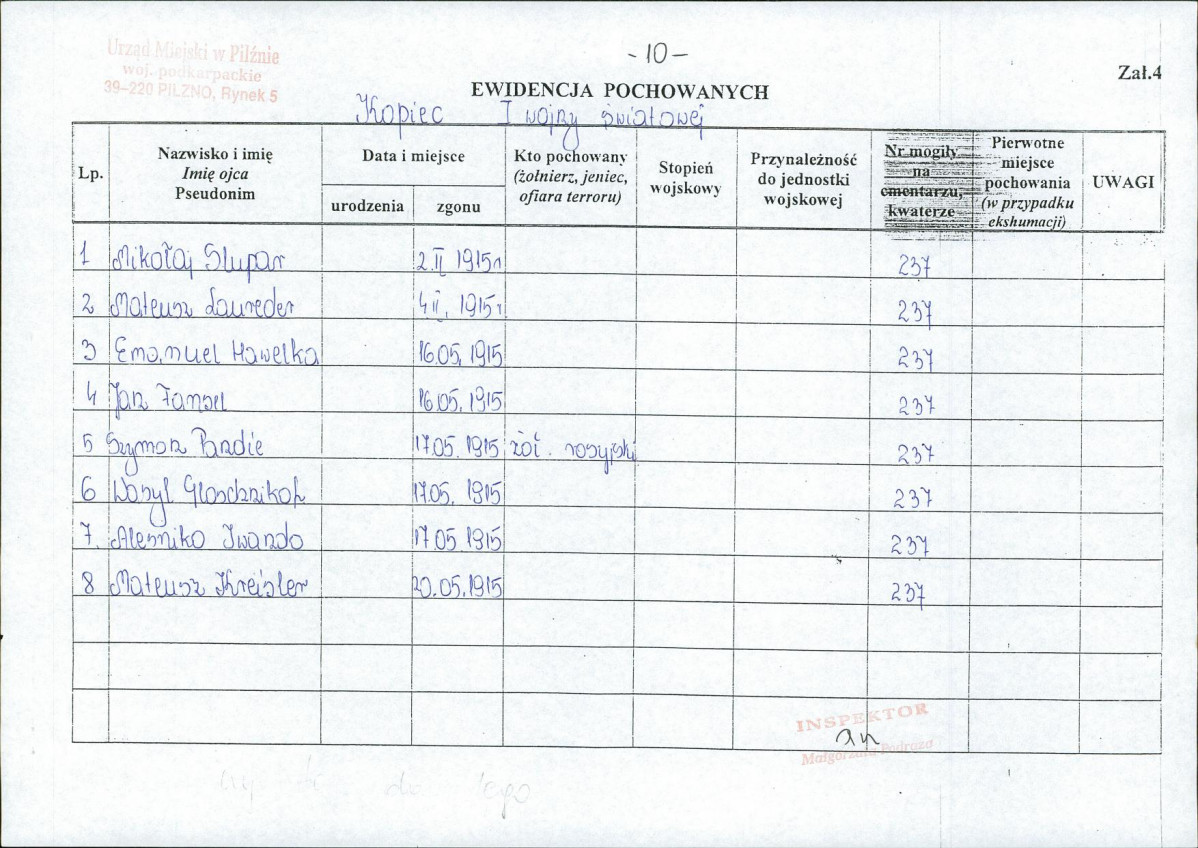 Urząd Miejski w Pilźnie
woj. podkarpackie
39-220 PILZNO, Rynek 5
- 10 -
Zał.4
EWIDENCJA POCHOWANYCH
Kopiec I wojny światowej
Lp. Nazwisko i imię Imię ojca Pseudonim Data i miejsce urodzenia zgonu Kto pochowany (żołnierz, jeniec, ofiara terroru) Stopień wojskowy Przynależność do jednostki wojskowej Nr mogiły na cmentarzu, kwaterze Pierwotne miejsce pochowania (w przypadku ekshumacji) UWAGI
1 Mikołaj Slupar 2.II 1915r 237
2 Mateusz Laureder 4II, 1915r 237
3 Emanuel Hawelka 16.05.1915 237
4 Jan 16.05.1915 237
5 Szymon Pardie 17.05.1915 żoł. rosyjski 237
6 Wasyl 17.05.1915 237
7. Alesniko Iwando 17.05.1915 237
8 Mateusz Kreisler 20.05.1915 237
INSPEKTOR
Małgorzata Podraza
do tego